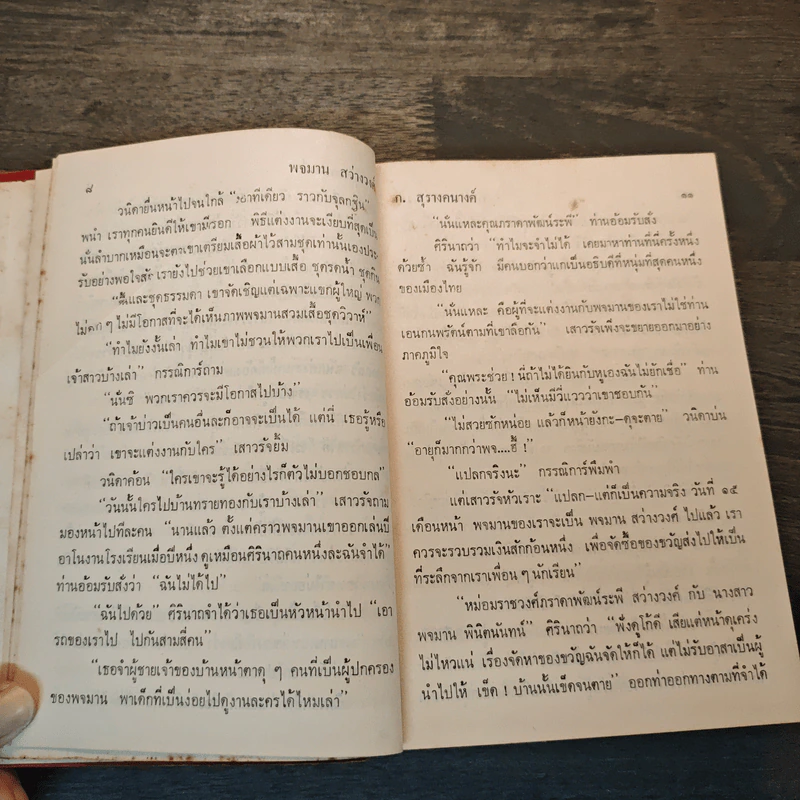 ๘
พจมาน สว่างวงศ์
วนิดายื่นหน้าไปจนใกล้ “งอาทีเดียว ราวกับจุลกฐิน”
พนำ เราทุกคนยินดีให้เขามีรอก พิธีแต่งงานจะเงียบที่สุด
นั่นลำบากเหมือนจะ เขาเตรียมเสื้อผ้าไว้สามชุดเท่านั้นเองประ
รับอย่างพอใจ เรายังไปช่วยเขาเลือกแบบเสื้อ ชุดรดน้ำ ชุดกิน
“นี้และชุดธรรมดา เขาจัดเชิญแต่เฉพาะแขกผู้ใหญ่ พวก
ไม่ ๆ ไม่มีโอกาสที่จะได้เห็นภาพพจมานสวมเสื้อชุดวิวาห์”
“ทำไมยังงั้นเล่า ทำไมเขาไม่ชวนให้พวกเราไปเป็นเพื่อน
เจ้าสาวบ้างเล่า” กรรณิการ์ถาม
“นั่นซิ พวกเราควรจะมีโอกาสไปบ้าง”
“ถ้าเจ้าบ่าวเป็นคนอื่นละก็อาจจะเป็นได้ แต่นี่ เธอรู้หรือ
เปล่าว่า เขาจะแต่งงานกับใคร” เสาวรัจยิ้ม
วนิดาค้อน “ใครเขาจะรู้ได้อย่างไรก็ตัวไม่บอกชอบกล”
“วันนั้นใครไปบ้านทรายทองกับเราบ้างเล่า” เสาวรัจถาม
มองหน้าไปทีละคน “นานแล้ว ตั้งแต่คราวพจมานเขาออกเล่นปี
อาโนงานโรงเรียนเมื่อปีหนึ่ง ดูเหมือนศิรินาถคนหนึ่งละฉันจำได้”
ท่านอ้อมรับสั่งว่า “ฉันไม่ได้ไป”
“ฉันไปด้วย” ศิรินาถจำได้ว่าเธอเป็นหัวหน้านำไป “เอา
รถของเราไป ไปกันสามสี่คน”
“เธอจำผู้ชายเจ้าของบ้านหน้าตาดุ ๆ คนที่เป็นผู้ปกครอง
ของพจมาน พาเด็กที่เป็นง่อยไปดูงานละครได้ไหมเล่า”
ก. สุรางคนางค์
๑๑
“นั่นแหละคุณภราดาพัฒน์ระพี” ท่านอ้อมรับสั่ง
ศิรินาถว่า “ทำไมจะจำไม่ได้ เคยมาหาท่านที่นี่ครั้งหนึ่ง
ด้วยซ้ำ ฉันรู้จัก มีคนบอกว่าแกเป็นอธิบดีที่หนุ่มที่สุดคนหนึ่ง
ของเมืองไทย
“นั่นแหละ คือผู้ที่จะแต่งงานกับพจมานของเราไม่ใช่ท่าน
เอนกนพรัตน์ตามที่เขาลือกัน” เสาวรัจเพิ่งจะขยายออกมาอย่าง
ภาคภูมิใจ
“คุณพระช่วย ! นี่ถ้าไม่ได้ยินกับหูเองฉันไม่ยักเชื่อ” ท่าน
อ้อมรับสั่งอย่างนั้น “ไม่เห็นมีวี่แววว่าเขาชอบกัน”
“ไม่สวยซักหน่อย แล้วก็หน้ายังกะ–ดุจะตาย” วนิดาบ่น
“อายุก็มากกว่าพจ....ฮี้ !”
“แปลกจริงนะ” กรรณิการ์พึมพำ
แต่เสาวรัจหัวเราะ “แปลก–แต่ก็เป็นความจริง วันที่ ๑๕
เดือนหน้า พจมานของเราจะเป็น พจมาน สว่างวงศ์ ไปแล้ว เรา
ควรจะรวบรวมเงินสักก้อนหนึ่ง เพื่อจัดซื้อของขวัญส่งไปให้เป็น
ที่ระลึกจากเราเพื่อน ๆ นักเรียน”
“หม่อมราชวงศ์ภราดาพัฒน์ระพี สว่างวงศ์ กับ นางสาว
พจมาน พินิตนันทน์” ศิรินาถว่า “ฟังดูโก้ดี เสียแต่หน้าดุเคร่ง
ไม่ไหวแน่ เรื่องจัดหาของขวัญฉันจัดให้ก็ได้ แต่ไม่รับอาสาเป็นผู้
นำไปให้ เข็ด ! บ้านนั้นเข็ดจนตาย” ออกท่าออกทางตามที่จำได้